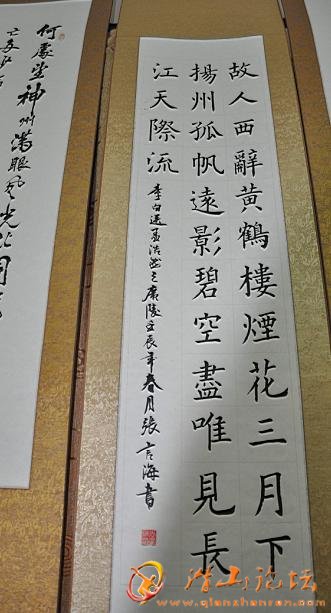 故人西辭黃鶴樓煙花三月下
揚州孤帆遠影碧空盡唯見長
江天際流
李白送孟浩然之廣陵壬辰年春月張言海書
何處望神州滿眼風光北固
亡多少
潜山论坛
www.qianshanren.com